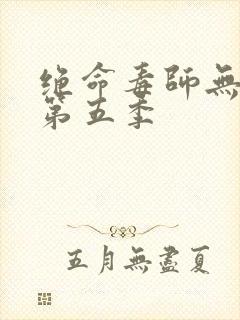 绝命毒師無
第五季
五月無盡夏